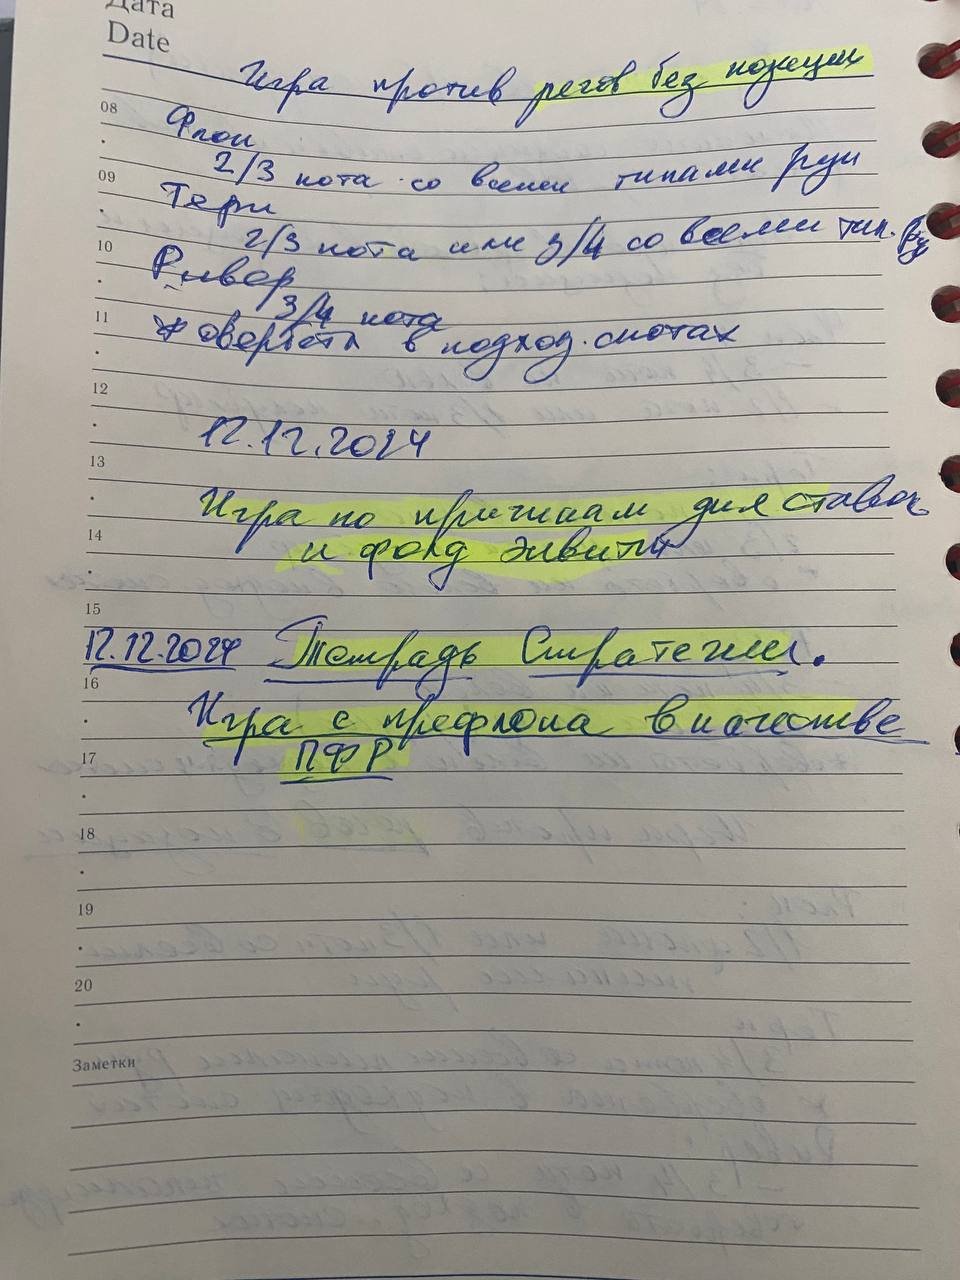 Дата
Date
Игра против регов без позиции
08
Флоп
2/3 пота со всеми типами рук
09
Терн
2/3 пота или 3/4 со всеми тип. рук
10
Ривер
3/4 пота
11
* овербеты в подход. спотах
12
12.12.2024
13
Игра по причинам для ставок
14
и фолд эквити
15
12.12.2024 Тетрадь Стратегии.
16
Игра с префлопа в качестве
17
ПФР
18
19
20
Заметки